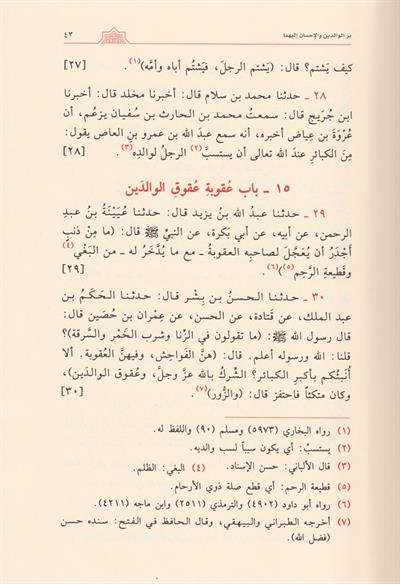 بر الوالدين والإحسان إليهما
٤٣
كيف يَشتم؟ قال: (يَشتم الرجلَ، فيَشتُم أباه وأمَّه)(١). [٢٧]
٢٨ ـ حدثنا محمد بن سلام قال: أخبرنا مخلد قال: أخبرنا
ابن جُرَيج قال: سمعتُ محمد بن الحارث بن سُفيان يزعُم، أن
عُرْوَةَ بن عِياض أخبره، أنه سمع عبدَ الله بن عمرو بن العاص يقول:
مِنَ الكبائرِ عندَ الله تعالى أن يستسبَّ(٢) الرجلُ لوالدِه(٣). [٢٨]
١٥ ـ باب عُقوبةِ عُقوقِ الوالدَين
٢٩ ـ حدثنا عبدُ الله بنُ يزيد قال: حدثنا عُيَيْنَةُ بنُ عبدِ
الرحمن، عن أبيه، عن أبي بَكرة، عن النبيِّ ﷺ قال: (ما مِن ذنبٍ
أجْدَرُ أن يُعَجَّلَ لصاحبِه العقوبةُ ـ مع ما يُدَّخَرُ له ـ من البَغْي(٤)
وقَطيعةِ الرَّحِم(٥))(٦). [٢٩]
٣٠ ـ حدثنا الحسنُ بن بِشْر قال: حدثنا الحَكَمُ بن
عبد الملك، عن قَتادة، عن الحسن، عن عِمْران بن حُصَين قال:
قال رسول الله ﷺ: (ما تقولون في الزِّنا وشربِ الخَمْر والسَّرقة)؟
قلنا: الله ورسوله أعلم. قال: (هنَّ الفَواحِش، وفيهنَّ العُقوبة. ألا
أُنَبِّئُكم بأكبرِ الكبائر؟ الشِّركُ بالله عزَّ وجلَّ، وعُقوق الوالدَين)،
وكان متكئاً فاحتفز قال: (والزُّور)(٧). [٣٠]
(١) رواه البخاري (٥٩٧٣) ومسلم (٩٠) واللفظ له.
(٢) يستسبّ: أي يكون سبباً لسب والديه.
(٣) قال الألباني: حسن الإسناد. (٤) البغي: الظلم.
(٥) قطيعة الرحم: أي قطع صلة ذوي الأرحام.
(٦) رواه أبو داود (٤٩٠٢) والترمذي (٢٥١١) وابن ماجه (٤٢١١).
(٧) أخرجه الطبراني والبيهقي، وقال الحافظ في الفتح: سنده حسن
(فضل الله).